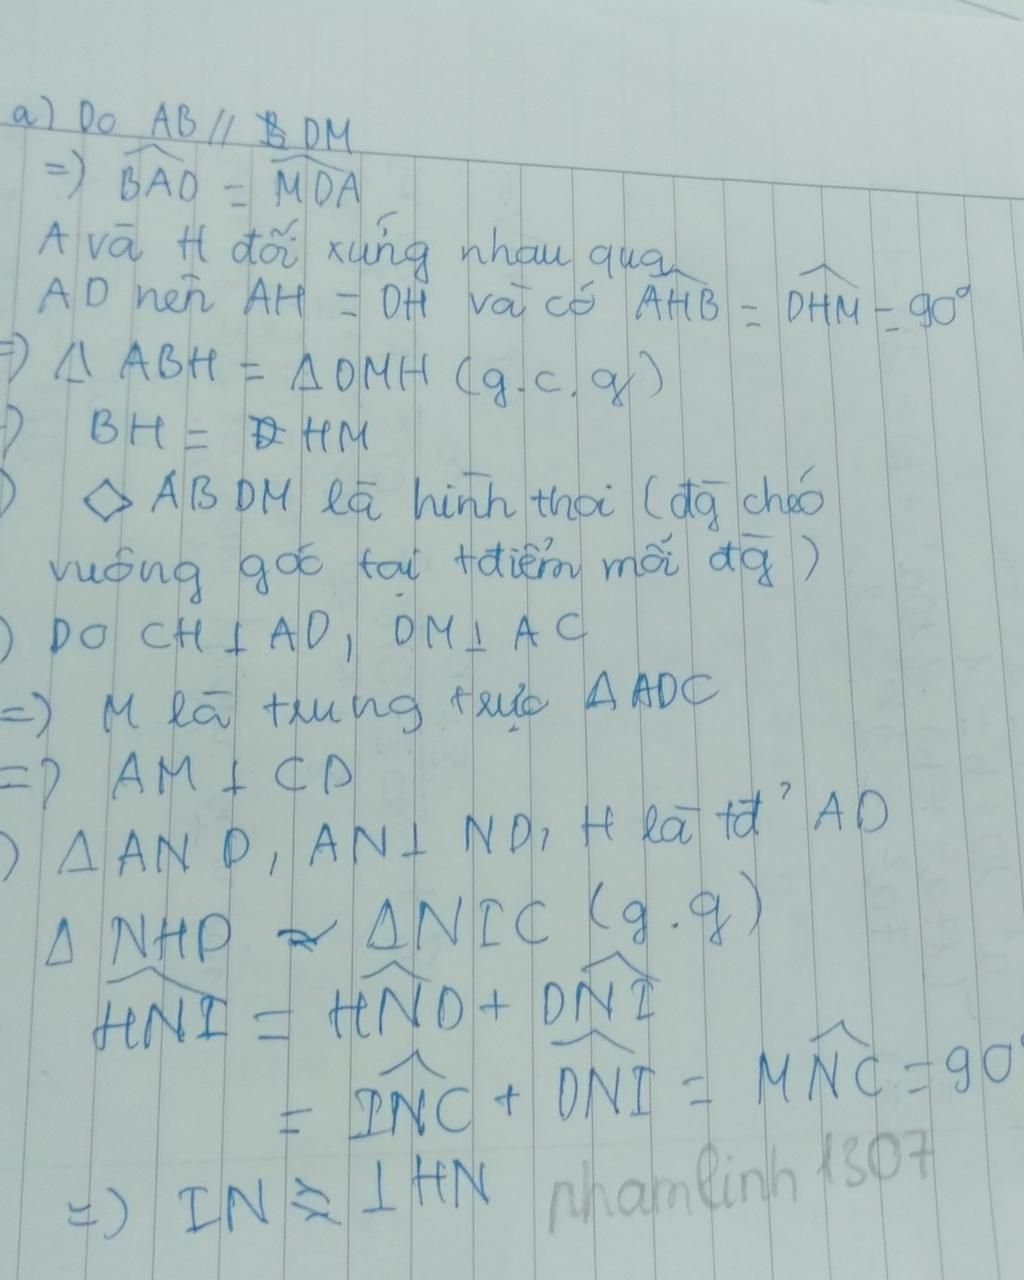 a) Do AB // DM
=) BAD = MDA
A và H đối xứng nhau qua
AD nên AH = DH và có AHB = DHM = 90°
=) Δ ABH = Δ DMH (g.c.g)
=) BH = HM
=) ◇ ABDM là hình thoi (đg chéo
vuông góc tại tđiểm mỗi đg)
) Do CH ⊥ AD, DM ⊥ AC
=) M là trung trực Δ ADC
=) AM ⊥ CD
) Δ AND, AN ⊥ ND, H là tđ' AD
Δ NHD ~ Δ NIC (g.g)
HNI = HND + DNI
= INC + DNI = MNC = 90°
=) IN ⊥ HN
nhamlinh1307